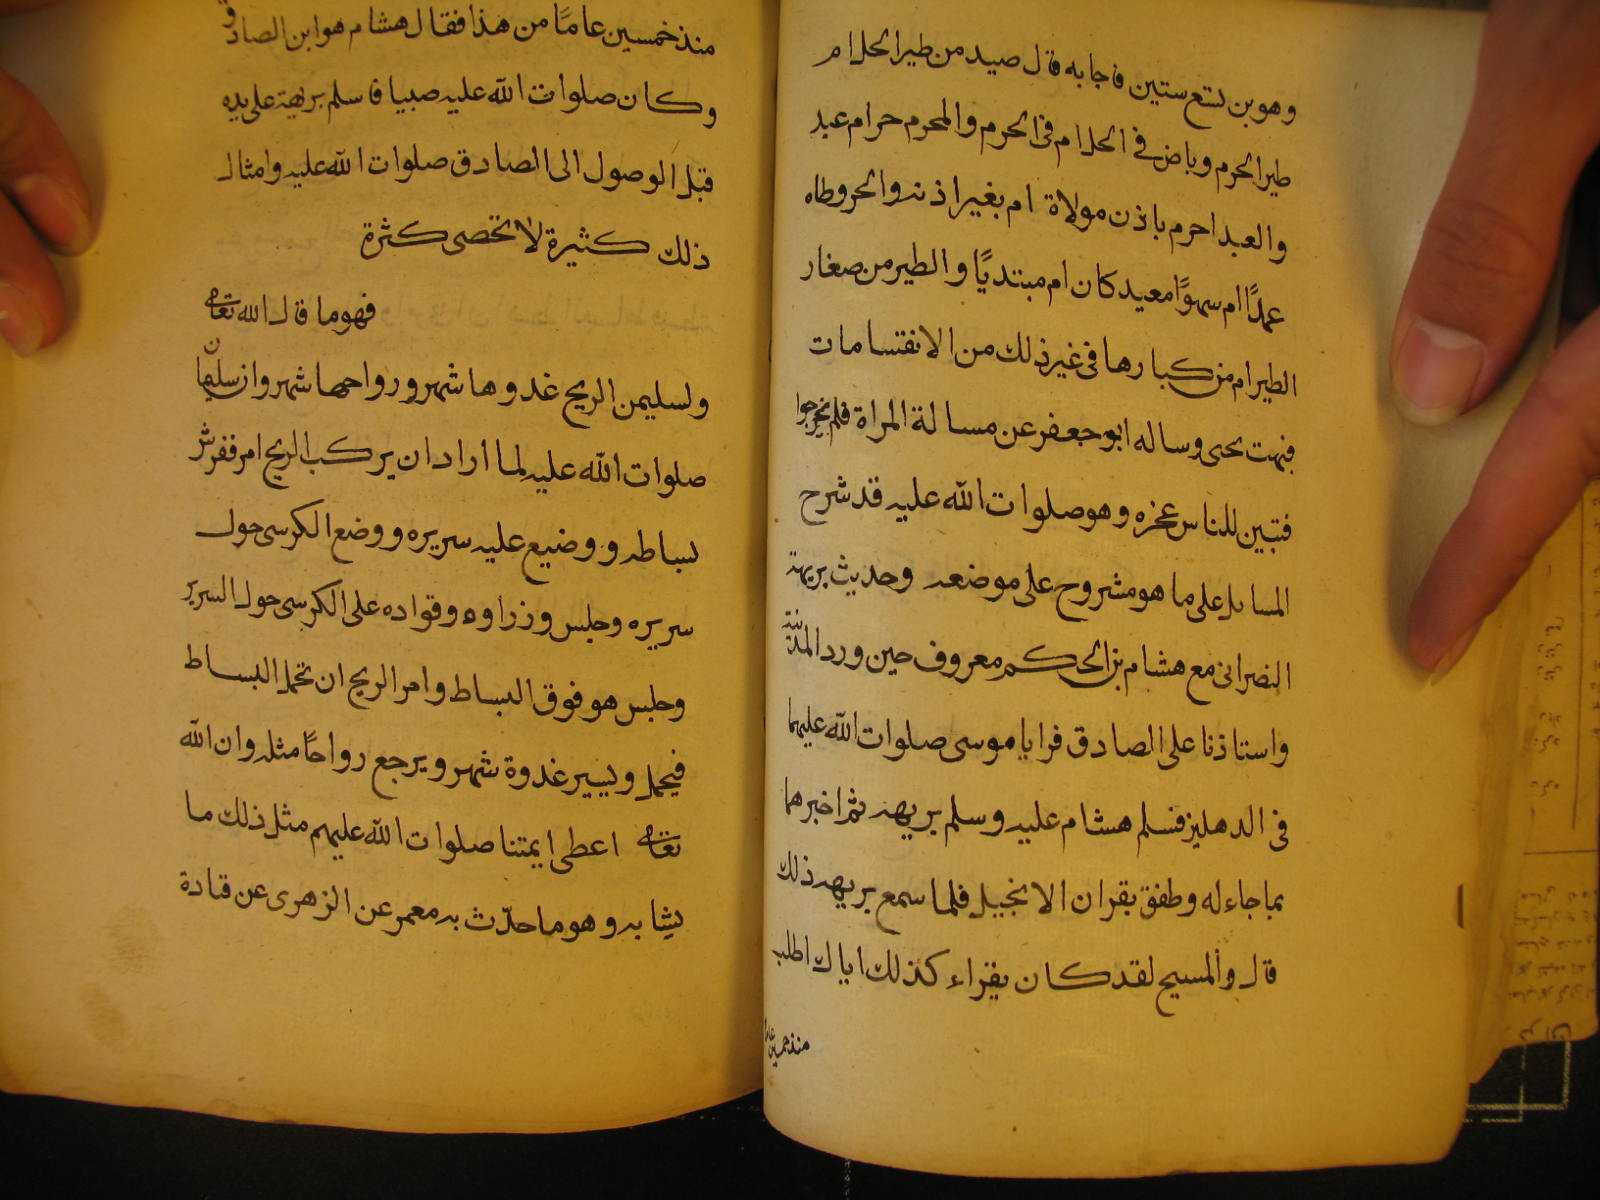 وهو بن تسع ستين فاجابه قال صيد من طير الحلام
طير الحرم وباض في الحلام فى الحرم والمحرم حرام عبد
والعبد احرم باذن مولاة ام بغير اذنه والحر وطاه
عمدًا ام سهوًا معيد كان ام مبتديًا والطير من صغار
الطير ام من كبارها فى غير ذلك من الانقتسامات
فبهت يحيى وساله ابو جعفر عن مسالة المراة فلم يخرجوا
فتبين للناس عجزه وهو صلوات الله عليه قد شرح
المسايل على ما هو مشروح على موضعه وحديث بريهة
النصرانى مع هشام بن الحكم معروف حين ورد المدينة
واستاذنا على الصادق فرايا موسى صلوات الله عليهما
فى الدهليز فسلم هشام عليه وسلم بريهه ثم اخبرهما
بما جاء له وطفق بقران الانجيل فلما سمع بريهه ذلك
قال والمسيح لقد كان يقراء كذلك اياك اطلب
منذ خمسين عاما
منذ خمسين عامًا من هذا فقال هشام هو ابن الصادق
وكان صلوات الله عليه صبيا فاسلم بريهة على يده
قبل الوصول الى الصادق صلوات الله عليه وامثال
ذلك كثيرة لا تحصى كثرة
فهو ما قال الله تعالى
ولسليمن الريح غدوها شهر ورواحها شهر وان سليمان
صلوات الله عليه لما اراد ان يركب الريح امر ففرش
بساطه ووضيع عليه سريره ووضع الكرسى حول
سريره وجلس وزراوه وقواده على الكرسى حول السرير
وجلس هو فوق البساط وامر الريح ان تحمل البساط
فيحمل ويسير غدوة شهر ويرجع رواحًا مثله وان الله
تعالى اعطى ايمتنا صلوات الله عليهم مثل ذلك ما
يشابه وهو ما حدّث به معمر عن الزهرى عن قتادة